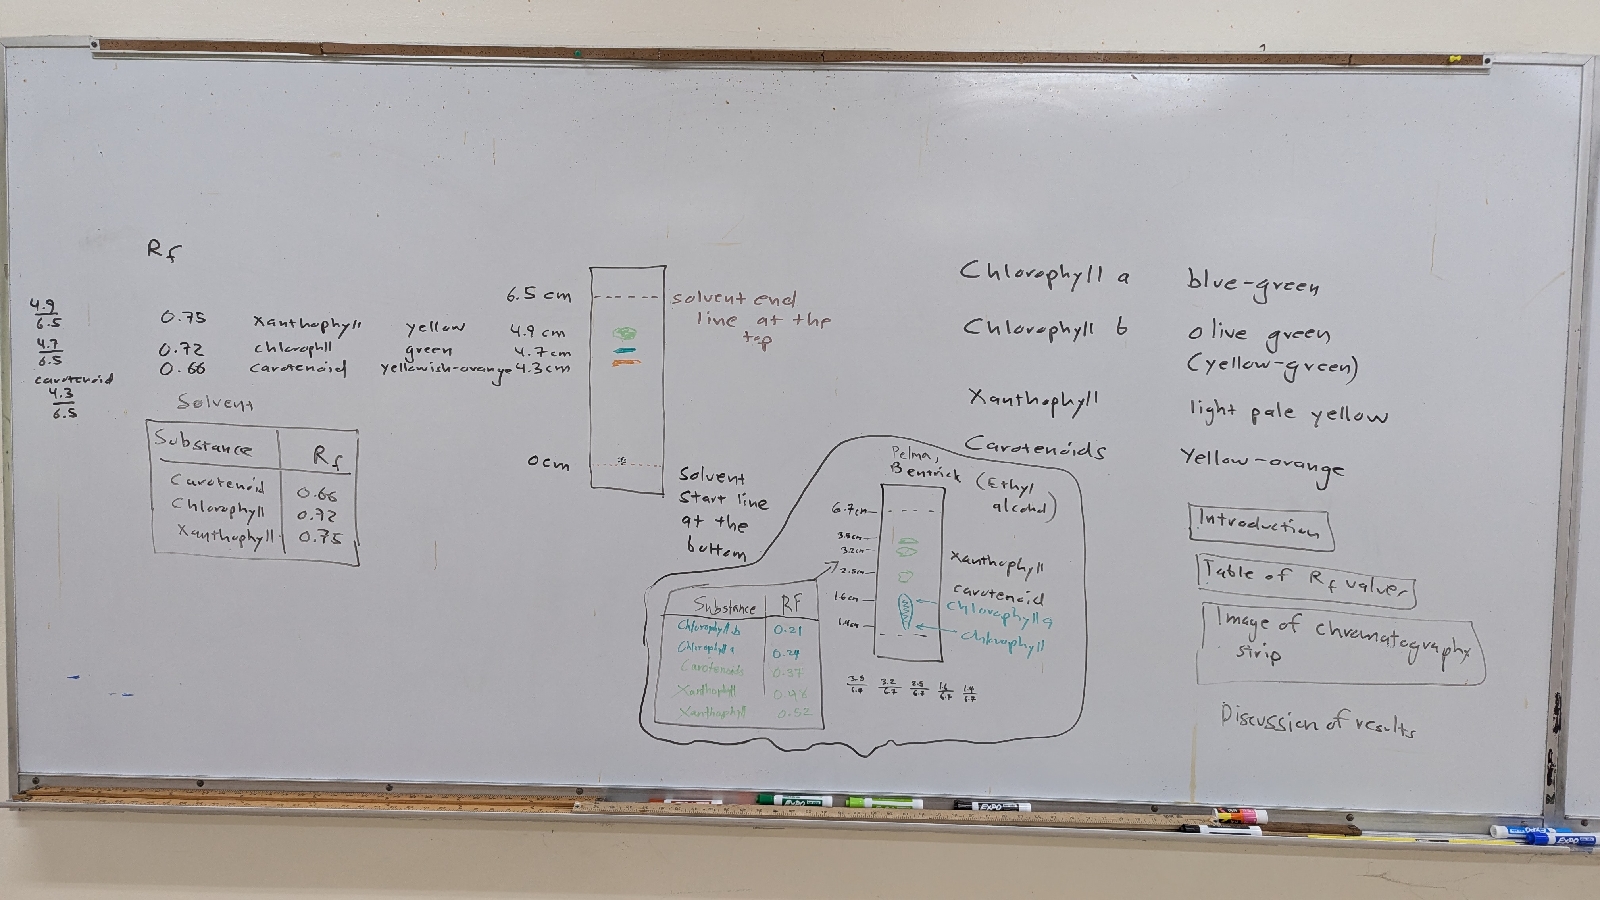 Rf
4.9
6.5
0.75 xanthophyll yellow 4.9 cm
4.7
6.5
0.72 chlorophll green 4.7cm
carotenoid
4.3
6.5
0.66 carotenoid yellowish-orange 4.3cm
Solvent
Substance Rf
Carotenoid 0.66
Chlorophyll 0.72
Xanthophyll 0.75
6.5 cm
solvent end
line at the
top
0cm
Solvent
Start line
at the
bottom
Chlorophyll a blue-green
Chlorophyll b olive green
(yellow-green)
Xanthophyll light pale yellow
Carotenoids Yellow-orange
Pelma,
Bentrick (Ethyl
alcohol)
6.7cm
3.5cm
3.2cm
2.5cm
1.6cm
1.4cm
Xanthophyll
carotenoid
Chlorophyll a
chlorophyll
Substance RF
Chlorophyll b 0.21
Chlorophyll a 0.24
Carotenoids 0.37
Xanthophyll 0.48
Xanthophyll 0.52
3.5 3.2 2.5 1.6 1.4
6.7 6.7 6.7 6.7 6.7
Introduction
Table of Rf values
Image of chromatography
strip
Discussion of results
EXPO
EXPO
EXPO